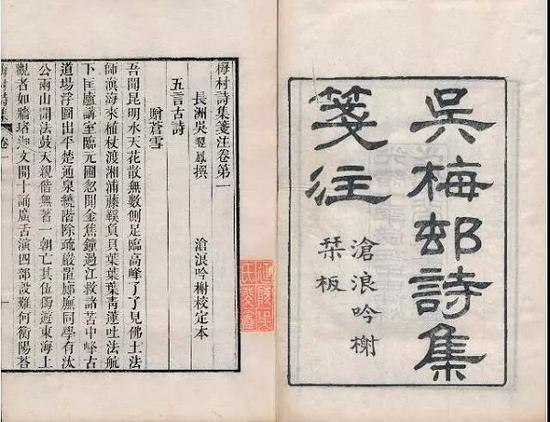 吳梅邨詩集
箋注
滄浪吟榭
栞板
梅村詩集箋注卷第一
長洲吳翌鳳撰 滄浪吟榭校定本
五言古詩
贈蒼雪
吾聞昆明水天花散無數側足臨高峰了了見佛土法
師滇海來植杖渡湘浦藤鞵負貝葉葉葉青蓮吐法航
下匡廬講室臨元圃忽聞金焦鐘過江救諸苦中峰古
道場浮圖出平楚通泉繞階除疏巖置廊廡同學有汰
公兩山開法鼓天親偕無著一朝亡其伍獨遊東海上
觀者如牆堵迦文開十誦廣舌演四部設難何衡陽答
梅村詩集 卷一